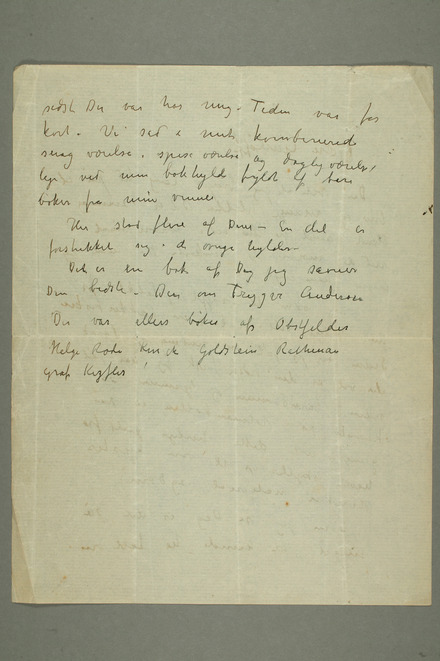 sidst Du var hos mig – Tiden var for
kort – Vi sad i mit kombinered
svæg værelse, spise værelse og daglig værelse,
lige ved min bokhyld fyldt af bare
bøker fra mine venner
Her stod flere af Dine – En del er
forstukket sig i de øvrige hylder –
Det er en bok af Dig jeg savner
Den bedste – Den om Trygve Andersen
Der var ellers bøker af Obstfelder
Helge Rode Kinck Goldstein Rathenau
graf Kessler